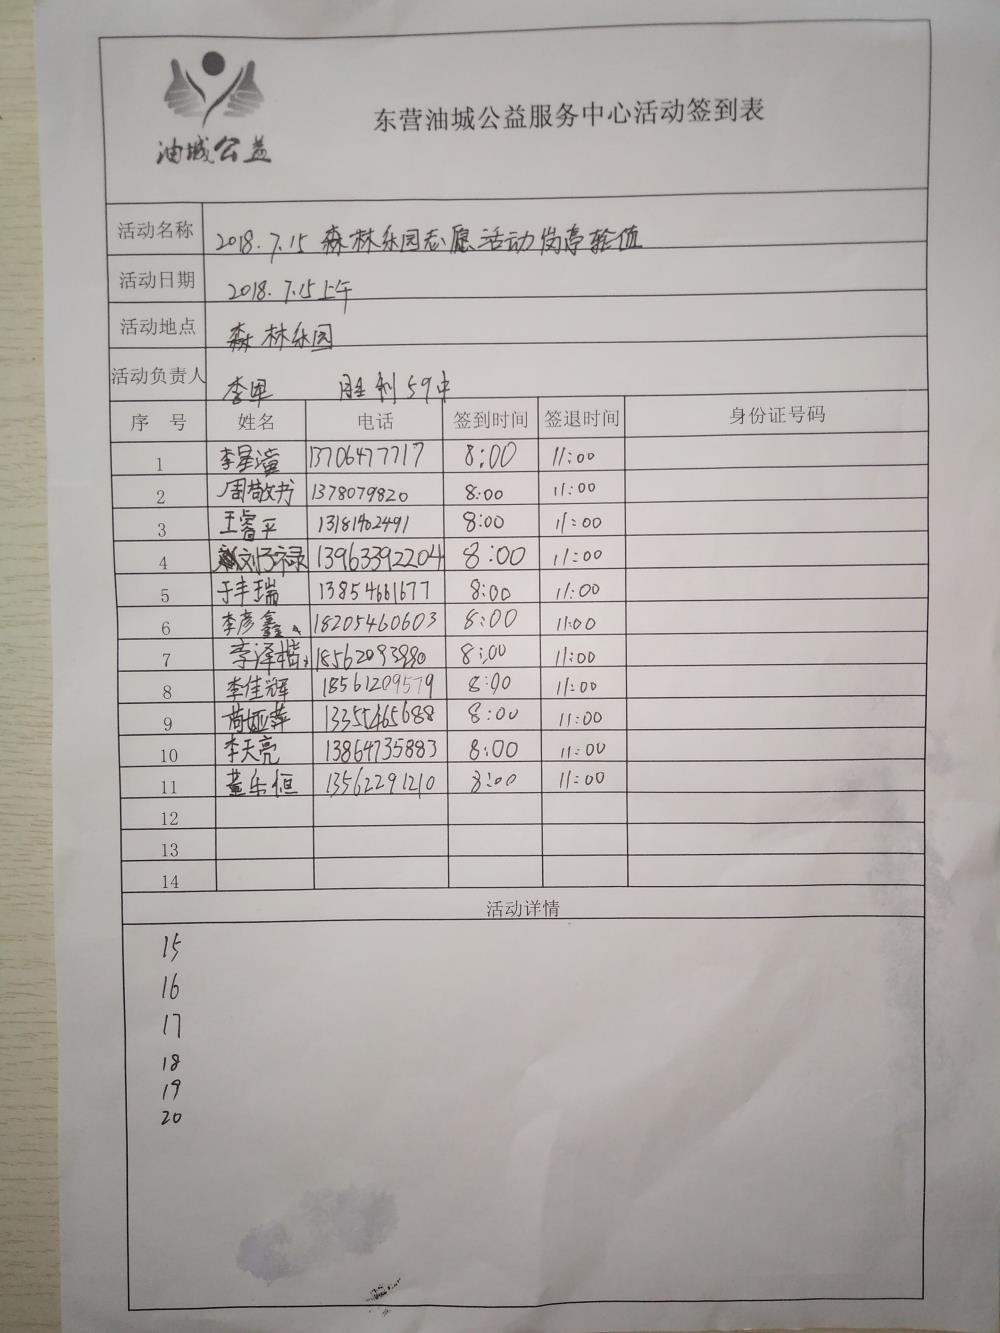 油城公益
东营油城公益服务中心活动签到表
活动名称 2018.7.15 森林乐园志愿活动岗亭轮值
活动日期 2018.7.15上午
活动地点 森林乐园
活动负责人 李军 胜利59中
序 号 姓名 电话 签到时间 签退时间 身份证号码
1 李星潼 13706477717 8:00 11:00
2 周敬书 1378079820 8:00 11:00
3 王睿平 13181902491 8:00 11:00
4 刘子禄 13963392204 8:00 11:00
5 于丰瑞 13854661677 8:00 11:00
6 李彦鑫 18205460603 8:00 11:00
7 李泽楷 8:00 11:00
8 李佳辉 18561209579 8:00 11:00
9 13355465688 8:00 11:00
10 李天亮 13864735883 8:00 11:00
11 董乐恒 13562291210 8:00 11:00
12
13
14
活动详情
15
16
17
18
19
20